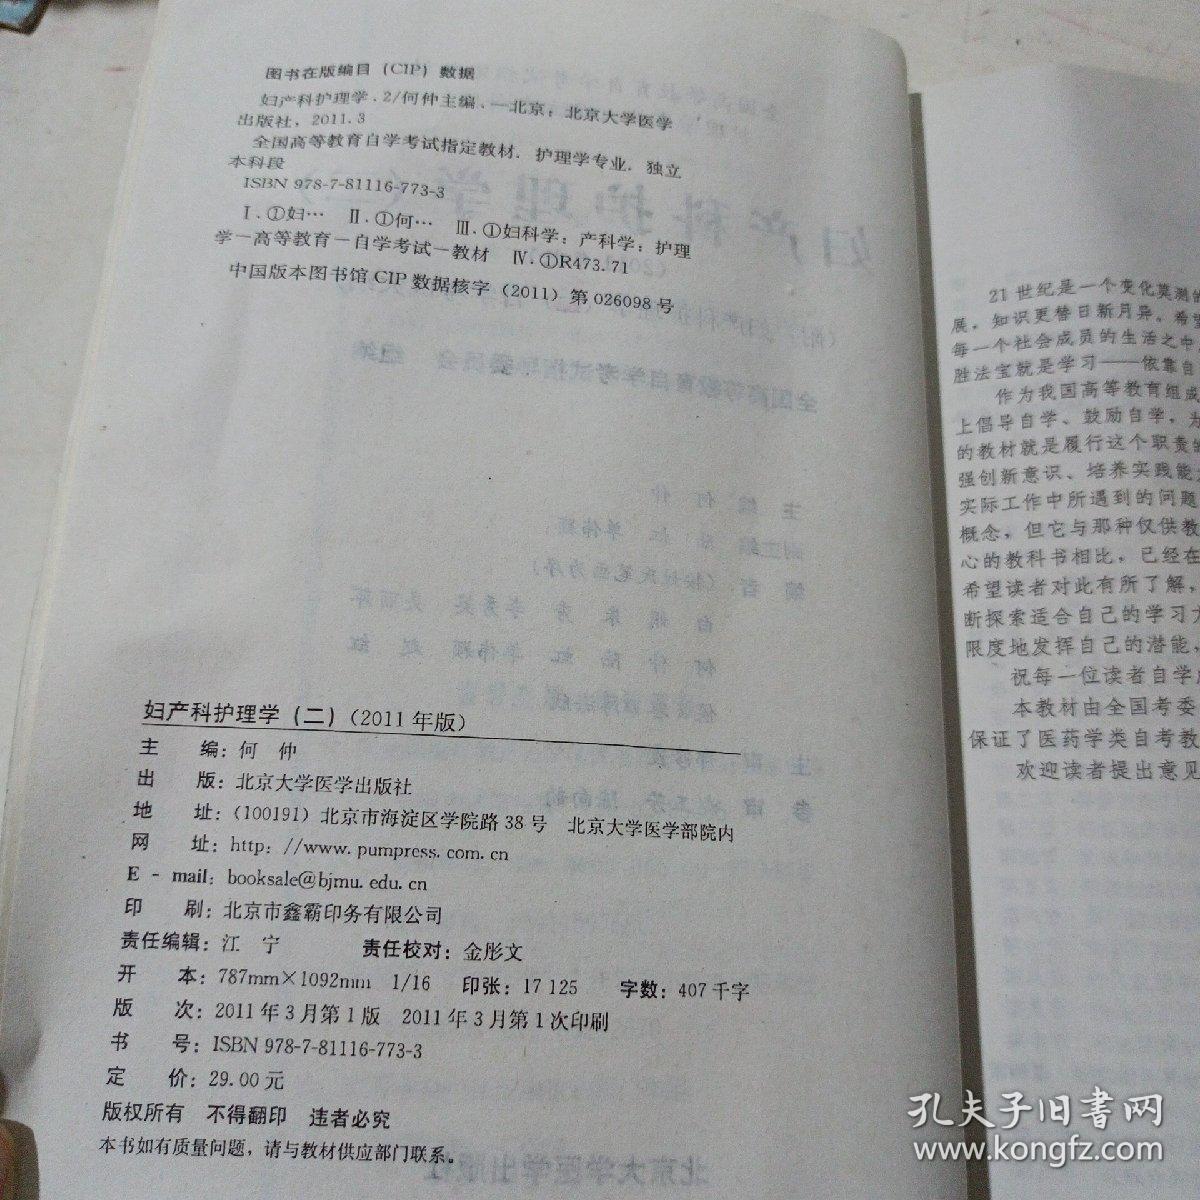 图书在版编目（CIP）数据
妇产科护理学．2/何仲主编．—北京：北京大学医学
出版社，2011.3
全国高等教育自学考试指定教材．护理学专业．独立
本科段
ISBN 978-7-81116-773-3
Ⅰ．①妇… Ⅱ．①何… Ⅲ．①妇科学：产科学：护理
学－高等教育－自学考试－教材 Ⅳ．①R473.71
中国版本图书馆CIP数据核字（2011）第026098号
妇产科护理学（二）（2011年版）
主 编：何 仲
出 版：北京大学医学出版社
地 址：（100191）北京市海淀区学院路38号 北京大学医学部院内
网 址：http：//www.pumpress.com.cn
E - mail：booksale@bjmu.edu.cn
印 刷：北京市鑫霸印务有限公司
责任编辑：江 宁 责任校对：金彤文
开 本：787mm×1092mm 1/16 印张：17 125 字数：407千字
版 次：2011年3月第1版 2011年3月第1次印刷
书 号：ISBN 978-7-81116-773-3
定 价：29.00元
版权所有 不得翻印 违者必究
本书如有质量问题，请与教材供应部门联系。
21世纪是一个变化莫测的
展，知识更替日新月异。希望
每一个社会成员的生活之中，
胜法宝就是学习——依靠自
作为我国高等教育组成
上倡导自学、鼓励自学，为
的教材就是履行这个职责的
强创新意识、培养实践能
实际工作中所遇到的问题
概念，但它与那种仅供教
心的教科书相比，已经在
希望读者对此有所了解，
断探索适合自己的学习方
限度地发挥自己的潜能，
祝每一位读者自学
本教材由全国考委
保证了医药学类自考教
欢迎读者提出意见
孔夫子旧书网
www.kongfz.com